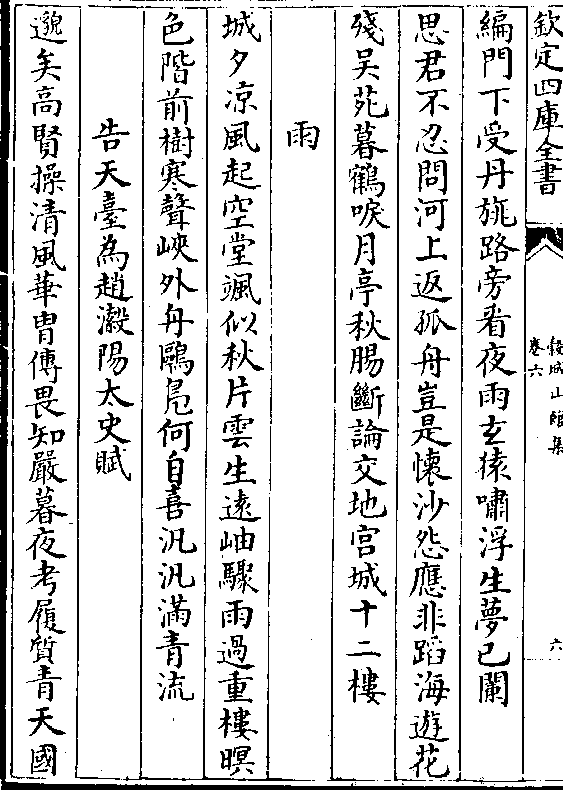 欽定四庫全書
穀城山館集
卷六
六
編門下受丹旐路旁看夜雨玄猿嘯浮生夢已闌
思君不忍問河上返孤舟豈是懷沙怨應非蹈海遊花
殘吳苑暮鶴唳月亭秋腸斷論交地宫城十二樓
雨
城夕凉風起空堂颯似秋片雲生逺岫驟雨過重樓暝
色階前樹寒聲峽外舟鷗鳬何自喜汎汎滿青流
告天臺為趙瀔陽太史賦
邈矣高賢操清風華胄傳畏知嚴暮夜考履質青天國